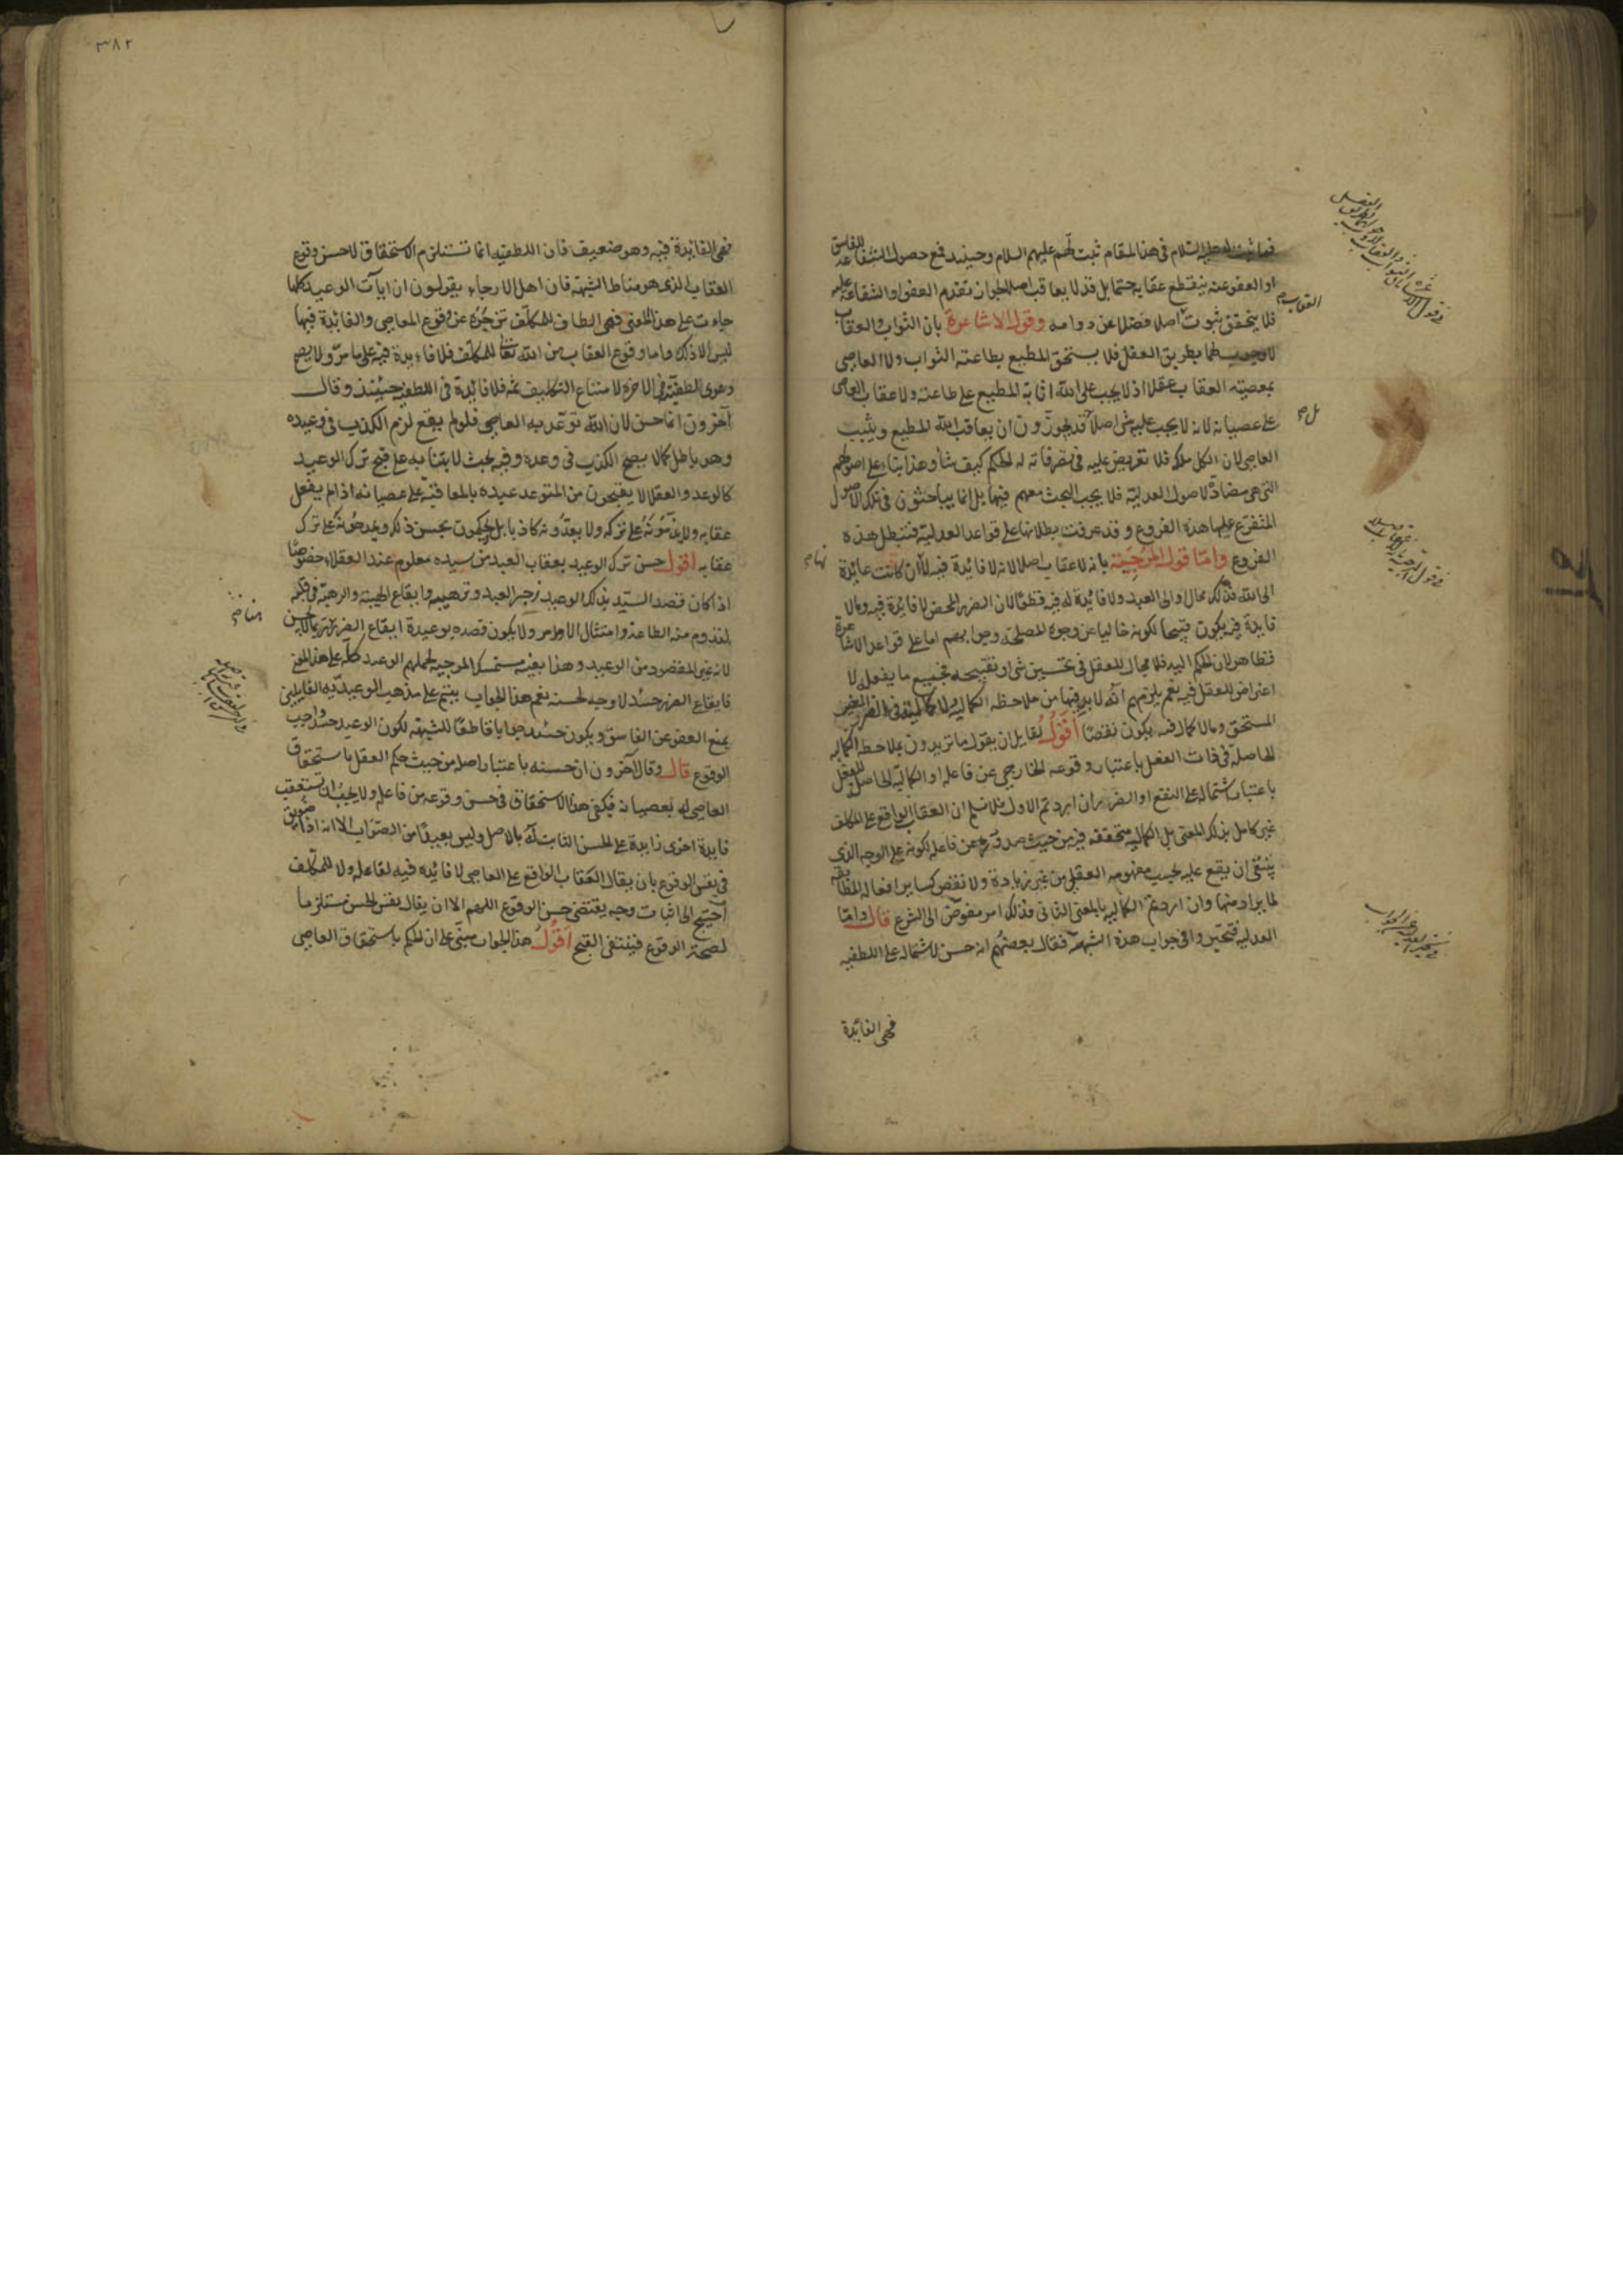 فما ثبت له عليه السلام في هذا المقام ثبت لهم عليهم السلام وحينئذ فمع حصول الشفاعة للفاسق
او العفو عنه ينقطع عقابه حتما بل قد لا يعاقب اصلا لجواز تقدم العفو او الشفاعة عليه
فلا يتحقق ثبوته اصلا فضلا عن دوامه وقول الاشاعرة بان الثواب والعقاب
لا وجوب لهما بطريق العقل فلا يستحق المطيع بطاعته الثواب ولا العاصى
بمعصيته العقاب عقلا اذ لا يجب على الله اثابة المطيع على طاعته ولا عقاب العاصى
على عصيانه لانه لا يجب عليه شى اصلا قد يجوزون ان يعاقب الله المطيع ويثيب
العاصى لان الكل ملكه فلا تعريض عليه في تصرفاته له الحكم كيف شأ وهذا بناء على اصولهم
التى هى مضادة لاصول العدلية فلا يجب البحث معهم فيها بل انما يباحثون فى تلك الاصول
المتفرع عليها هذه الفروع وقد عرفت بطلانها على قواعد العدلية فتبطل هذه
الفروع واما قول المرجية بانه لا عقاب اصلا لانه لا فائدة فيه لا ان كانت عائدة
الى الله فذلك محال والى العبد ولا فائدة له فيه قطعا لان الضرر المحض لا فائدة فيه وما لا
فايدة فيه يكون قبيحا لكونه خاليا عن وجوه المصلحة وجوابهم اما على قواعد الاشاعرة
فظاهر لان الحكم اليه فلا مجال للعقل فى تحسين شى او تقبيحه فجميع ما يفعل لا
اعتراض للعقل فيه نعم يلزمهم انه لا بد فيها من ملاحظة الكمالية ولا كمالية فى الضرر الغير
المستحق وما لا كمال فيه يكون نقصا اقول لقايل ان يقول ما تريدون بملاحظة الكمالية
الحاصلة فى ذات الفعل باعتبار وقوعه الخارجى عن فاعله او الكمالية الحاصلة للفعل
باعتبار اشتماله على النفع او الضرر ان اردتم الاول فلا نسلم ان العقاب الواقع على المكلف
غير كامل بذلك المعنى بل الكمالية متحققه فيه من حيث صدوره عن فاعله لكونه على الوجه الذى
ينبغى ان يقع عليه بحسب مفهومه العقلى من غير زيادة ولا نقص كساير افعاله المطابقة
لما يراد منها وان اردتم الكمالية بالمعنى الثانى فذلك امر مفوض الى الشرع قال واما
العدلية فتحيروا فى جواب هذه الشبهة فقال بعضهم انه حسن لاشتماله على اللطفيه
فهى الفائدة
العقاب
تمام
فهى الفائدة فيه وهو ضعيف فان اللطفيه انما تستلزم الاستحقاق لا حسن وقوع
العقاب الذى هو مناط الشبهة فان اهل الارجاء يقولون ان ايآت الوعيد كلها
جاءت على هذا المعنى فهى الطاف للمكلف تزجره عن وقوع المعاصى والفائدة فيها
ليس الا ذلك واما وقوع العقاب من الله تعالى للمكلف فلا فايدة فيه على ما مر ولا يصح
دعوى اللطفية فى الاخرة لامتناع التكليف ثم فلا فائدة فى اللطفية حينئذ وقال
آخرون انما حسن لان الله توعد به العاصى فلو لم يقع لزم الكذب فى وعيده
وهو باطل كما لا يصح الكذب فى وعده وفيه بحث لابتنائه على قبح ترك الوعيد
كالوعد والعقلا لا يقبحون من المتوعد عبيده بالمعاقبة على عصيانه اذا لم يفعل
عقابه ولا يذمونه على تركه ولا يعدونه كاذبا بل يحكمون بحسن ذلك ويمدحونه على ترك
عقابه اقول حسن ترك الوعيد بعقاب العبد من سيده معلوم عند العقلاء خصوصا
اذا كان قصد السيد بذلك الوعيد زجر العبد وترهيبه وايقاع الهيبة والرهبة فى قلبه
لتدوم منه الطاعة وامتثال الاوامر ولا يكون قصده بوعيده ايقاع الضرر
لانه غير المقصود من الوعيد وهذا بعينه مستمسك المرجية لحملهم الوعيد كله على هذا المعنى
فايقاع الضرر حينئذ لا وجه لحسنه نعم هذا الجواب يبتنى على مذهب الوعيدية القايلين
بمنع العفو عن الفاسق ويكون حينئذ جوابا قاطعا للشبهة لكون الوعيد حينئذ واجب
الوقوع قال وقال آخرون ان حسنه باعتبار اصله من حيث حكم العقل باستحقاق
العاصى له بعصيانه فيكفى هذا الاستحقاق فى حسن وقوعه من فاعله ولا يجب ان تستعقب
فايدة اخرى زايدة على الحسن الثابت له بالاصل وليس بعيدا من الصواب الا انه اذا
فى نفس الوقوع بان يقال العقاب الواقع على العاصى لا فائدة فيه لفاعله ولا للمكلف
احتيج الى اثبات وجه يقتضى حسن الوقوع اللهم الا ان يقال نفس الحسن مستلزما
لصحة الوقوع فينتفى القبح اقول هذا الجواب مبنى على ان الحكم باستحقاق العاصى
٣٨٢